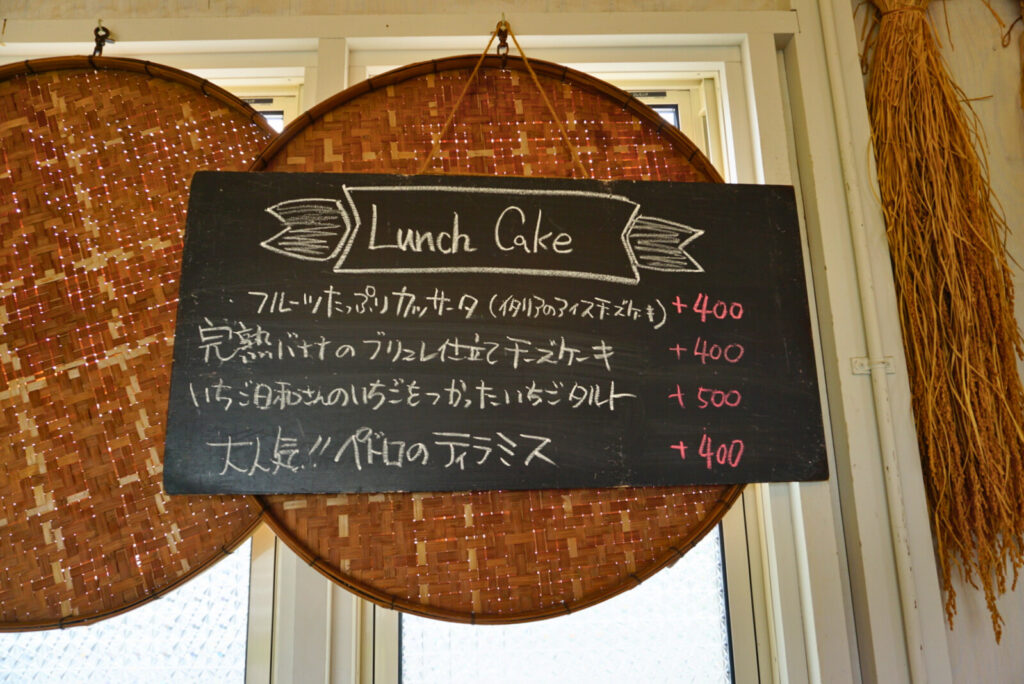 Lunch Cake
フルーツたっぷりカッサータ(イタリアのアイスチーズケーキ)+400
完熟バナナのブリュレ仕立てチーズケーキ +400
いちご日和さんのいちごをつかったいちごタルト +500
大人気!!ペドロのティラミス +400